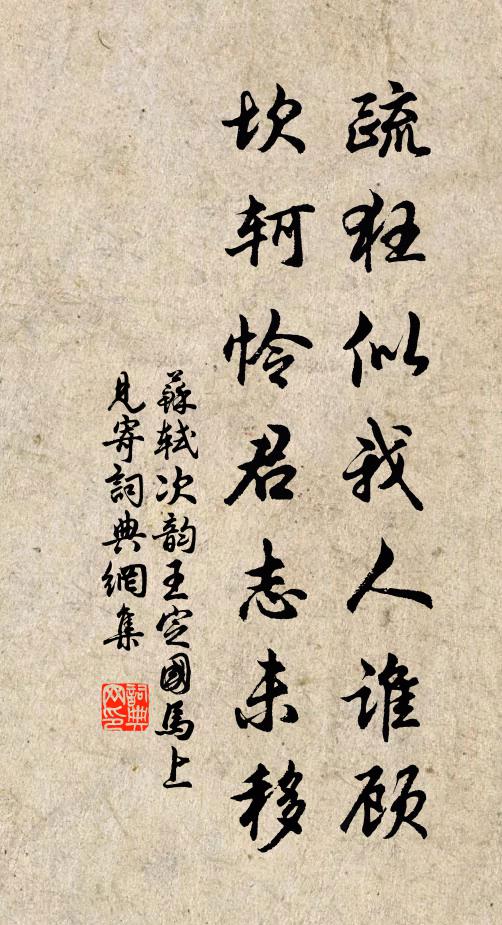 疏狂似我人谁顾
坎轲怜君志未移
蘇轼次韵王定國馬上
見寄詞典網集
詞典网印